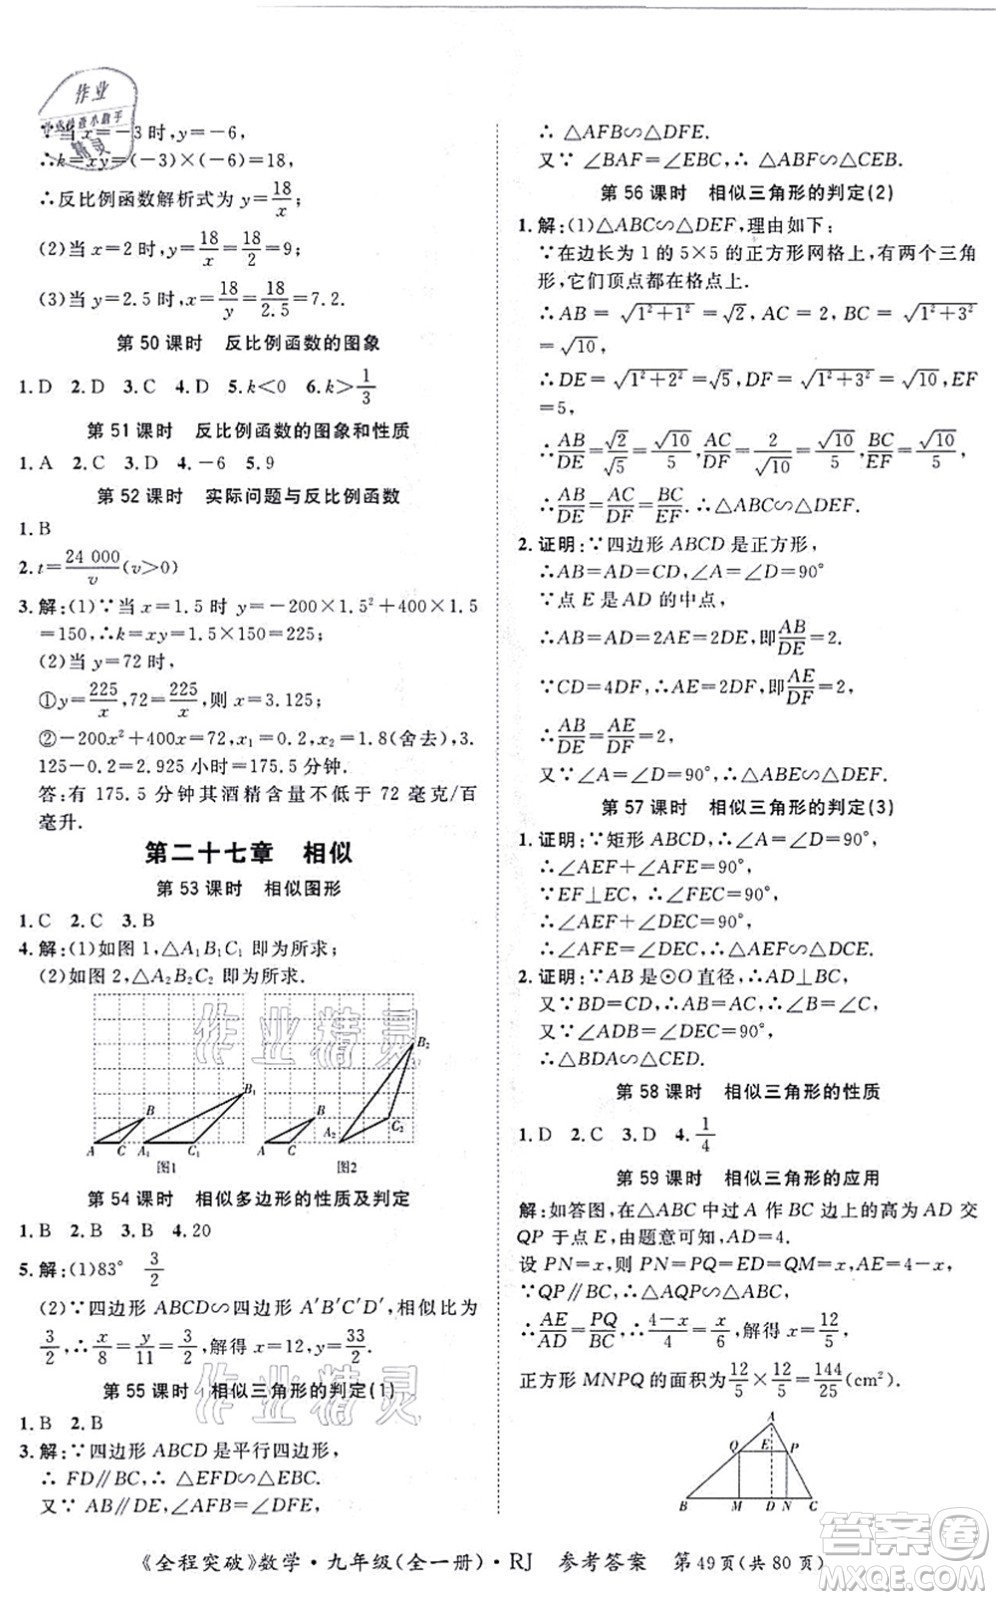 作业
作业检查小助手
精灵
∵当 x=-3 时, y=-6,
∴k=xy=(-3)×(-6)=18,
∴反比例函数解析式为 y=18/x;
(2)当 x=2 时, y=18/x=18/2=9;
(3)当 y=2.5 时, x=18/y=18/2.5=7.2.
第 50 课时 反比例函数的图象
1.D 2.D 3.C 4.D 5.k<0 6.k>1/3
第 51 课时 反比例函数的图象和性质
1.A 2.C 3.D 4.-6 5.9
第 52 课时 实际问题与反比例函数
1.B
2.t=24 000/v(v>0)
3.解:(1)∵当 x=1.5 时 y=-200×1.5²+400×1.5
=150,∴k=xy=1.5×150=225;
(2)当 y=72 时,
①y=225/x,72=225/x,则 x=3.125;
②-200x²+400x=72,x₁=0.2,x₂=1.8(舍去),3.
125-0.2=2.925 小时=175.5 分钟.
答:有 175.5 分钟其酒精含量不低于 72 毫克/百
毫升.
第二十七章 相似
第 53 课时 相似图形
1.C 2.C 3.B
4.解:(1)如图 1,△A₁B₁C₁ 即为所求;
(2)如图 2,△A₂B₂C₂ 即为所求.
作业精灵
A C B A₁ C₁ B₁
图1
A C B A₂ C₂ B₂
图2
第 54 课时 相似多边形的性质及判定
1.B 2.B 3.B 4.20
5.解:(1)83° 3/2
(2)∵四边形 ABCD∽四边形 A′B′C′D′,相似比为
3/2,∴x/8=y/11=3/2,解得 x=12,y=33/2.
作业精灵
第 55 课时 相似三角形的判定(1)
1.B 2.B
3.解:∵四边形 ABCD 是平行四边形,
∴ FD∥BC,∴ △AFB∽△DFE,
又∵ AB∥DE,∠AFB=∠DFE,
∴ △AFB∽△DFE.
又∵ ∠BAF=∠EBC,∴ △ABF∽△CEB.
第 56 课时 相似三角形的判定(2)
1.解:(1)△ABC∽△DEF,理由如下:
∵在边长为 1 的 5×5 的正方形网格上,有两个三角
形,它们顶点都在格点上.
∴AB=√(1²+1²)=√2,AC=2,BC=√(1²+3²)=
√10,
∴DE=√(1²+2²)=√5,DF=√(1²+3²)=√10,EF
=5,
∴AB/DE=√2/√5=√10/5,AC/DF=2/√10=√10/5,BC/EF=√10/5,
∴AB/DE=AC/DF=BC/EF.∴△ABC∽△DEF.
2.证明:∵四边形 ABCD 是正方形,
∴AB=AD=CD,∠A=∠D=90°
∵点 E 是 AD 的中点,
∴AB=AD=2AE=2DE,即AB/DE=2,
∵CD=4DF,∴AE=DE=2DF,即AE/DF=2,
∴AB/DE=AE/DF=2,
又∵∠A=∠D=90°,∴△ABE∽△DEF.
第 57 课时 相似三角形的判定(3)
1.证明:∵矩形 ABCD,∴∠A=∠D=90°,
∴∠AEF+∠AFE=90°,
∵EF⊥EC,∴∠FEC=90°,
∴∠AEF+∠DEC=90°,
∴∠AFE=∠DEC,∴△AEF∽△DCE.
2.证明:∵AB 是⊙O 直径,∴AD⊥BC,
又∵BD=CD,∴AB=AC,∴∠B=∠C,
又∵∠ADB=∠DEC=90°,
∴△BDA∽△CED.
第 58 课时 相似三角形的性质
1.D 2.C 3.D 4.1/4
第 59 课时 相似三角形的应用
解:如答图,在△ABC 中过 A 作 BC 边上的高为 AD 交
QP 于点 E,由题意可知,AD=4.
设 PN=x,则 PN=PQ=ED=QM=x,AE=4-x,
∵QP∥BC,∴△APQ∽△ABC,
∴AE/AD=PQ/BC,∴(4-x)/4=x/6,解得 x=12/5,
正方形 MNPQ 的面积为12/5×12/5=144/25(cm²).
A Q E P B M D N C
《全程突破》数学·九年级(全一册)·RJ 参考答案 第49页(共 80 页)
作业精灵